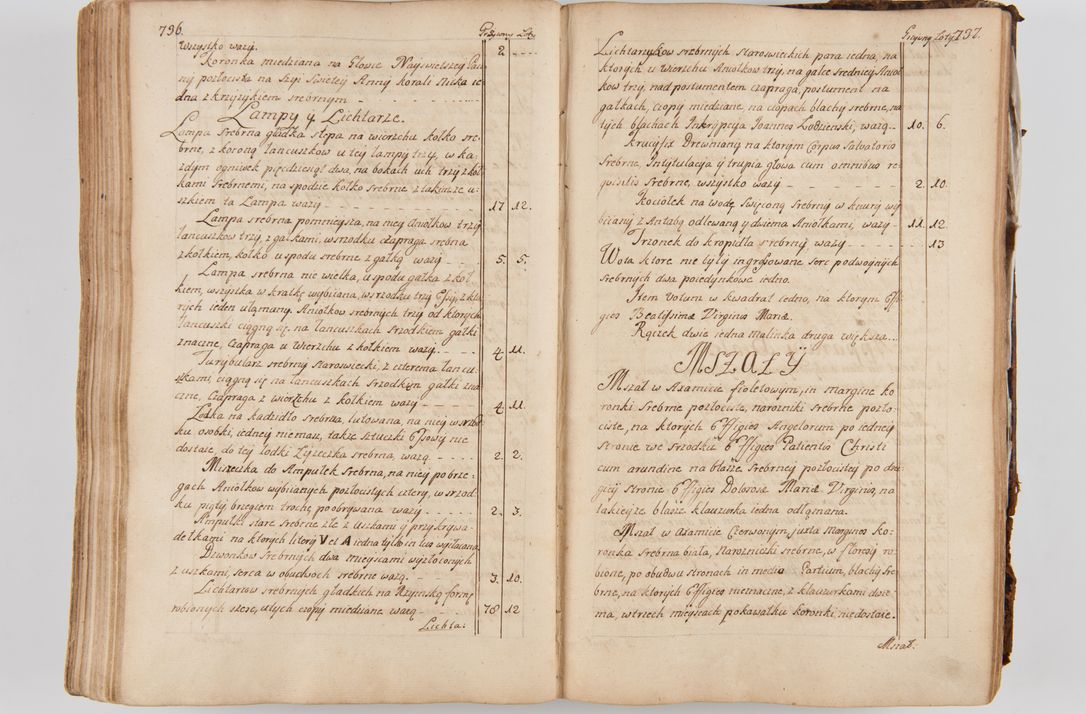 736.
Grzywny Loty
Wszystko waży. 2
Koronka miedziana na Głowie Nayswietszey Pan
ny pozłocista na Szyi Swietey Anny Korali sznurka ie
dna z krzyzykiem srebrnym
Lampy y Lichtarze.
Lampa Srebrna gładka slepa na wierzchu kołko sre
brne, z koroną łancuszkow u tey lampy trzy, w ka
zdym ogniwek pięcdziesiąt dwa, na bokach uch trzy z koł
kami Srebrnemi, na spodzie kołko srebrne z takimze u-
szkiem ta Lampa wazy 17 12.
Lampa srebrna pomnieysza, na niey Aniołkow trzy
łancuszkow trzy, z gałkami, w srzodku czapraga srebrna
z kołkiem, kołko u spodu srebrne z gałką wazy 5. 5.
Lampa srebrna nie wielka, u spodu gałka z koł
kiem, wszystka w kratkę wybijana, w srzodku trzy
rych ieden ułamany. Aniołkow srebrnych trzy od ktorych
łancuszki ciągną się, na łancuszkach srzodkiem gałki
znaczne, Czapraga u wierzchu z kołkiem wazy. 4 11.
Turybularz srebrny staroswiecki, z czterema łancu
szkami ciągną się na łancuszkach srzodkiem gałki zna
czne, Czapraga z wierzchu z kołkiem wazy 4 11.
Łodka na kadzidło srebrna, lutowana, na niey w srzod
ku osobki, iedney niemasz, także sztuczki
dostaie do tey łodki Łyżeczka srebrna, wazą 2. 2.
Miseczka do Ampułek srebrna, na niey po brze-
gach Aniołkow wybijanych pozłocistych cztery, w srzod
ku piąty brzegiem trochę poobrywana wazy 2. 3.
Ampułki stare srebrne złe z uszkami y przykrywa-
dełkami na ktorych litery V et A iedna tylko in toto wyłacana
Dzwonkow Srebrnych dwa mieyscami wyzłoconych
z uszkami, serca w obudwoch srebrne wazą 3. 10.
Lichtarzow srebrnych gładkich na Rzymską formę
robionych szesc, u tych czopy miedziane wazą 78 12
Lichta:
Grzywny Loty 737.
Lichtarzykow srebrnych staroswieckich para iedna, na
ktorych u wierzchu Aniołkow trzy, na gałce srednicy Anioł
kow trzy, nad postumentem czapraga, postument na
gałkach, czopy miedziane, na czopach blachy srebrne, na
tych blachach Inkrypcya Joannes Łodzienski, wazą 10. 6.
Krucyfix Drewniany na ktorym Corpus Salvatoris
Srebrne, Intytulacya y trupia głowa cum omnibus re
quisitis srebrne, wszystko wazy 2. 10.
Kociołek na wodę Święconą Srebrny w knury wy
bijany z Antabą odlewaną y dwiema Aniołkami, wazy 11. 12.
Trzonek do kropidła srebrny, wazy 13
Wota ktore nie były ingrossowane serc podwoynych
srebrnych dwa poiedynkowe iedno.
Item Votum w kwadrat iedno, na ktorym Effi
gies Beatissimæ Virginis Mariæ.
Rączek dwie iedna malinka druga większa
MSZAŁY
Mszał w Axamicie fioletowym, in margine ko
ronki srebrne pozłociste, narozniki srebrne pozło
ciste, na ktorych Effigies Angelorum po iedney
stronie we srzodku Effigies Patientis Christi
cum arundine na blasze srebrney pozłocistey po dru
giey stronie Effigies Dolorosæ Mariæ Virginis, na
takieyze blasze klauzurka iedna odłamana.
Mszał w axamicie Czerwonym, juxta margines ko-
ronka srebrna biała, Narozniczki srebrne, w floresy ro-
bione, po obudwu stronach in medio Partium, blachy sre
brne, na ktorych Effigies nieznaczne, z klauzurkami dwie
ma, w trzech mieyscach po kawałku koronki niedostaie.
Mszał: